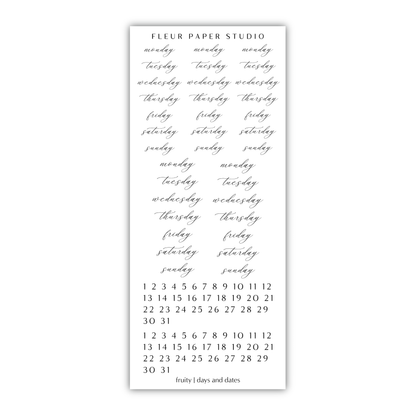 FLEUR PAPER STUDIO
monday monday monday
tuesday tuesday tuesday
wednesday wednesday wednesday
thursday thursday thursday
friday friday friday
saturday saturday saturday
sunday sunday sunday
monday monday
tuesday tuesday
wednesday wednesday
thursday thursday
friday friday
saturday saturday
sunday sunday
1 2 3 4 5 6 7 8 9 10 11 12
13 14 15 16 17 18 19 20 21
22 23 24 25 26 27 28 29
30 31
1 2 3 4 5 6 7 8 9 10 11 12
13 14 15 16 17 18 19 20 21
22 23 24 25 26 27 28 29
30 31
fruity | days and dates